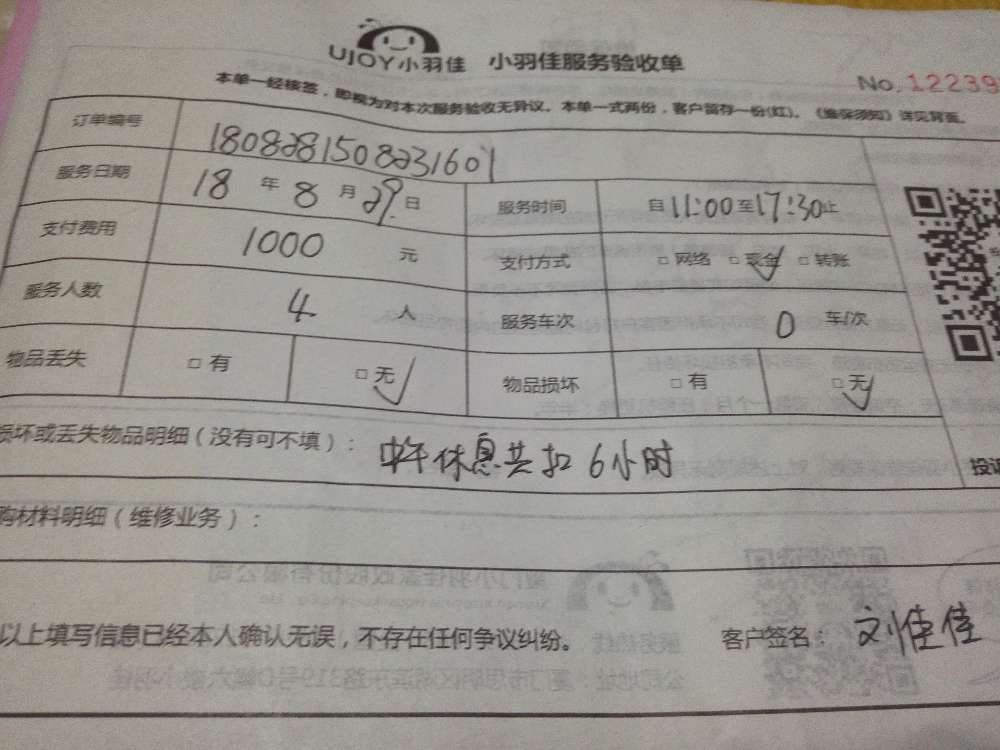 UJOY小羽佳 小羽佳服务验收单
No. 12239
本单一经核签，即视为对本次服务验收无异议。本单一式两份，客户留存一份(红)。《维保须知》详见背面。
订单编号 180828150823160
服务日期 18 年 8 月 29 日 服务时间 自 11:00 至 17:30 止
支付费用 1000 元 支付方式 □ 网络 □ 现金 ✓ □ 转账
服务人数 4 人 服务车次 0 车/次
物品丢失 □ 有 □ 无 ✓ 物品损坏 □ 有 □ 无 ✓
损坏或丢失物品明细（没有可不填）： 中午休息共扣6小时
投诉
购材料明细（维修业务）：
以上填写信息已经本人确认无误，不存在任何争议纠纷。 客户签名： 刘佳佳